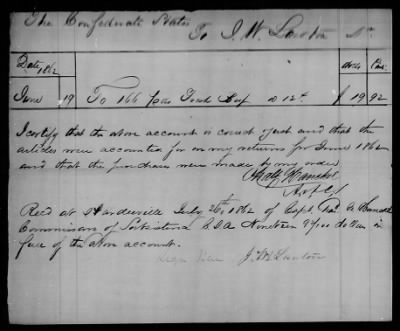 The Confederate States
To J. W. Lawton Dr
Date 1862 Dolls Cts.
June 19 To 166 lbs Fresh Beef @ 12¢ $ 19 92
I certify that the above account is correct & just and that the
articles were accounted for on my returns for June 1862
and that the purchase were made by my order
Recd at Hardeeville July 26th 1862 of Capt.
Commissary of Subsistence C.S.A Nineteen 92/100 dollars in
full of the above account.
J. W. Lawton